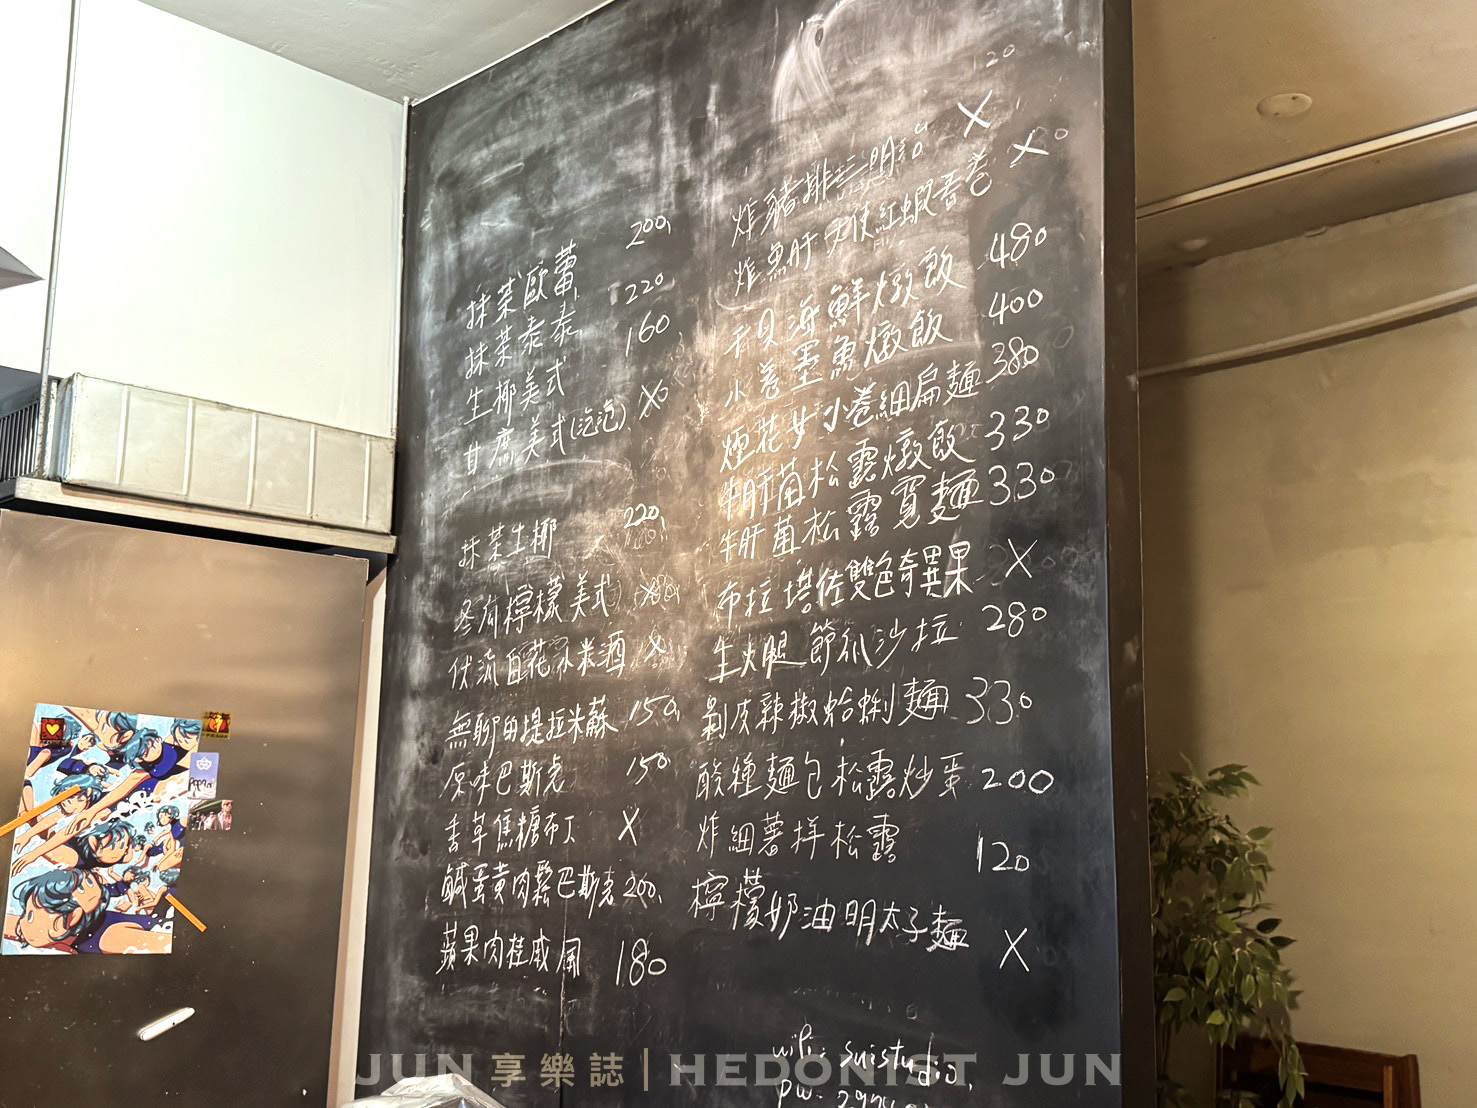 抹茶歐蕾 200
抹茶泰泰 220
生椰美式 160
甘蔗美式(泡泡) X
抹茶生椰 220
冬瓜檸檬美式 X
伏流百花小米酒 X
無聊的提拉米蘇 150
原味巴斯克 150
香草焦糖布丁 X
鹹蛋黃肉鬆巴斯克 200
蘋果肉桂戚風 180
120
炸豬排三明治 X
炸魚肝天使紅蝦香卷 X
干貝海鮮燉飯 480
小卷墨魚燉飯 400
煙花女小卷細扁麵 380
牛肝菌松露燉飯 330
牛肝菌松露寬麵 330
布拉塔佐雙色奇異果 X
生火腿節瓜沙拉 280
剝皮辣椒蛤蜊麵 330
酸種麵包松露炒蛋 200
炸細薯拌松露 120
檸檬奶油明太子麵 X
wifi: suistudio
pw:
JUN 享樂誌 | HEDONIST JUN